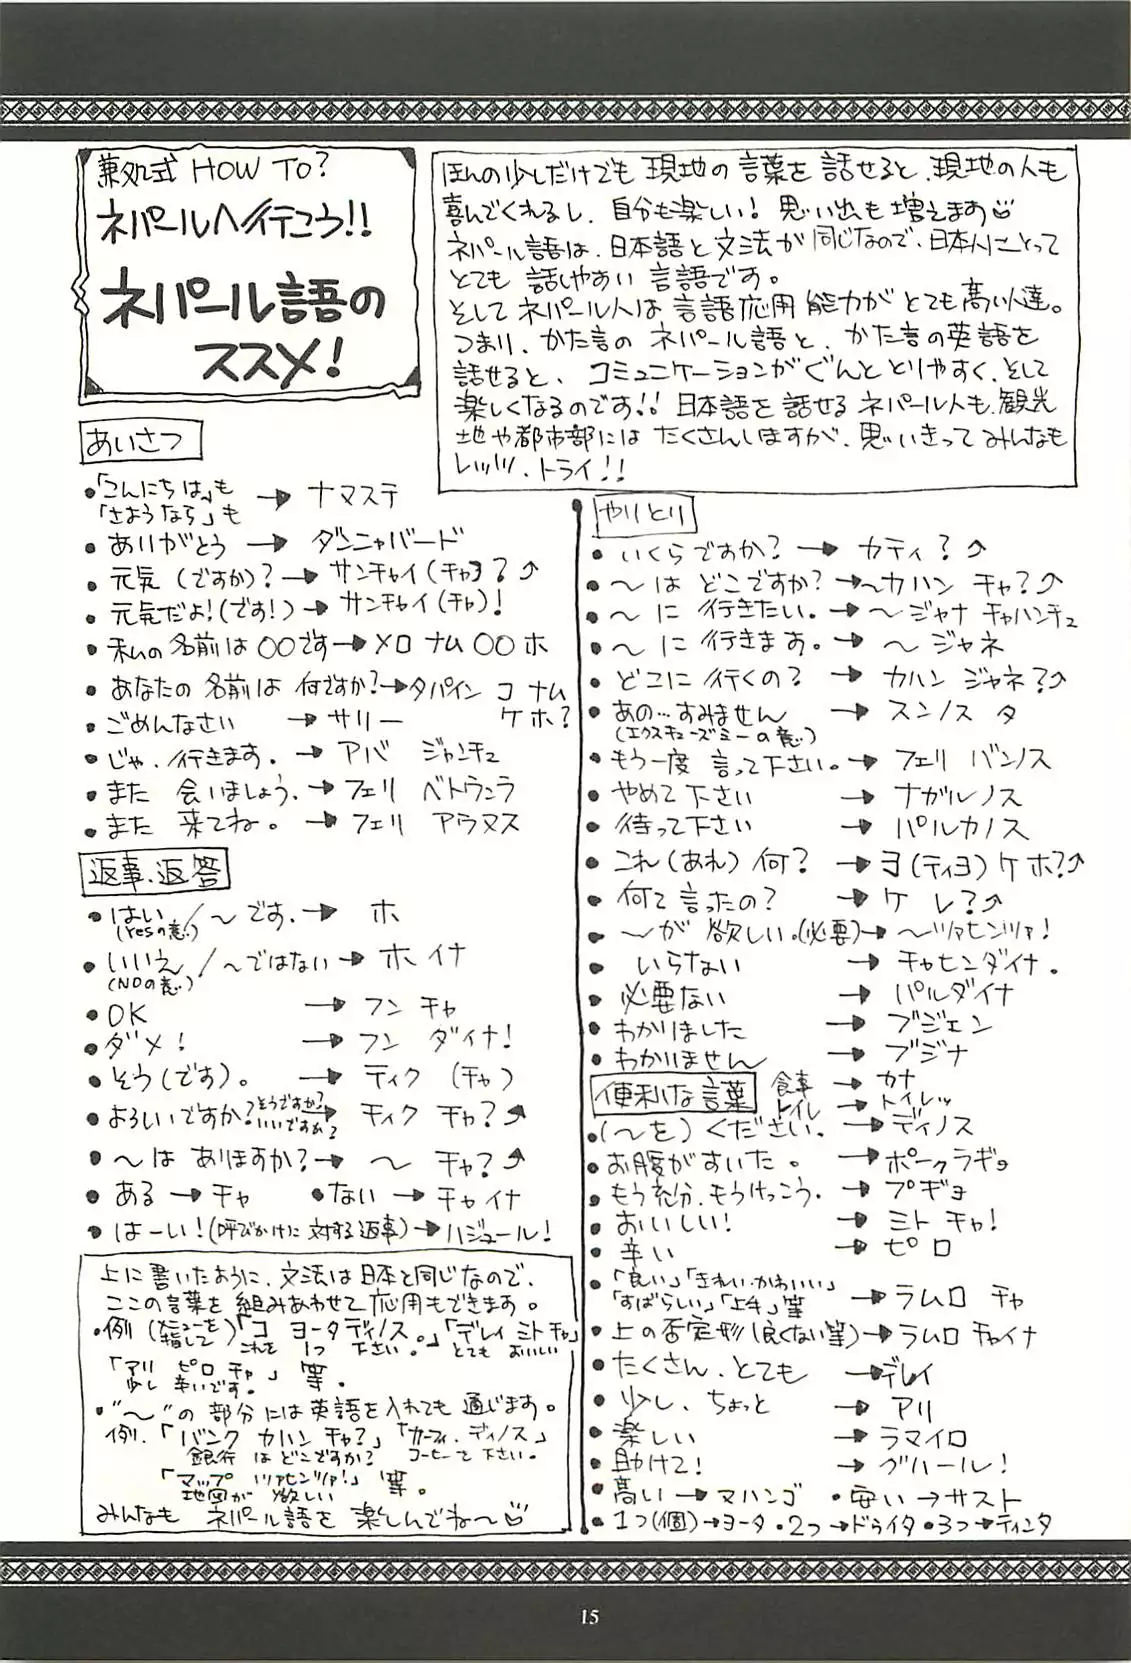 兼処式 HOW TO?
ネパールへ行こう!!
ネパール語の
ススメ!
ほんの少しだけでも現地の言葉を話せると、現地の人も
喜んでくれるし、自分も楽しい! 思い出も増えます
ネパール語は、日本語と文法が同じなので、日本人にとって
とても話しやすい言語です。
そしてネパール人は言語応用能力がとても高い人達。
つまり、かた言のネパール語と、かた言の英語を
話せると、コミュニケーションがぐんととりやすく、そして
楽しくなるのです!! 日本語を話せるネパール人も、観光
地や都市部にはたくさんいますが、思いきってみんなも
レッツ、トライ!!
あいさつ
●「こんにちは」も
「さようなら」も → ナマステ
●ありがとう → ダンニャバード
●元気(ですか)? → サンチャイ(チャ)?↗
●元気だよ!(です!) → サンチャイ(チャ)!
●私の名前は〇〇です → メロ ナム〇〇ホ
●あなたの名前は何ですか? → タパイン コ ナム
ケホ?
●ごめんなさい → サリー
●じゃ、行きます。 → アバ ジャンチュ
●また 会いましょう。 → フェリ ベトウンラ
●また 来てね。 → フェリ アウヌス
返事、返答
●はい/〜です。 → ホ
(Yesの意)
●いいえ/〜ではない → ホイナ
(NOの意)
●OK → フン チャ
●ダメ! → フン ダイナ!
●そう(です)。 → ティク (チャ)
●よろしいですか?そうですか?いいですか? → ティク チャ?↗
●〜は ありますか? → 〜 チャ?↗
●ある → チャ ●ない → チャイナ
●はーい!(呼びかけに対する返事) → ハジュール!
上に書いたように、文法は日本と同じなので、
ここの言葉を組みあわせて応用もできます。
●例(メニューを指して)「コ ヨータディノス。」「デレイ ミトチャ」
これを 1つ 下さい。 とても おいしい
「アリ ピロ チャ」 等。
少し 辛いです。
●"〜"の部分には英語を入れても通じます。
例.「バンク カハン チャ?」「カーフィ、ディノス」
銀行 はどこですか? コーヒーを下さい。
「マップ ツァヒンツァ!」等。
地図が 欲しい
みんなも ネパール語を 楽しんでね〜
やりとり
●いくらですか? → カティ?↗
●〜は どこですか? → 〜カハン チャ?↗
●〜に 行きたい。 → 〜ジャナ チャハンチュ
●〜に 行きます。 → 〜ジャネ
●どこに 行くの? → カハン ジャネ?↗
●あの…すみません → スンノス タ
(エクスキューズミーの意)
●もう一度 言って下さい。 → フェリ バンノス
●やめて下さい → ナガルノス
●待って下さい → パルカノス
●これ(あれ)何? → ヨ(ティヨ)ケホ?↗
●何て言ったの? → ケ レ?↗
●〜が 欲しい。(必要) → 〜ツァヒンツァ!
●いらない → チャヒンダイナ。
●必要ない → パルダイナ
●わかりました → ブジェン
●わかりません → ブジナ
便利な言葉
食事 → カナ
トイレ → トイレッ
●(〜を)ください。 → ディノス
●お腹がすいた。 → ポークラギョ
●もう充分、もうけっこう。 → プギョ
●おいしい! → ミト チャ!
●辛い → ピロ
●「良い」「きれい・かわいい」
「すばらしい」「上手」等 → ラムロ チャ
●上の否定形(良くない等) → ラムロ チャイナ
●たくさん、とても → デレイ
●少し、ちょっと → アリ
●楽しい → ラマイロ
●助けて! → グハール!
●高い → マハンゴ ●安い → サスト
●1つ(個) → ヨータ ●2つ → ドゥイタ ●3つ → ティンタ
15